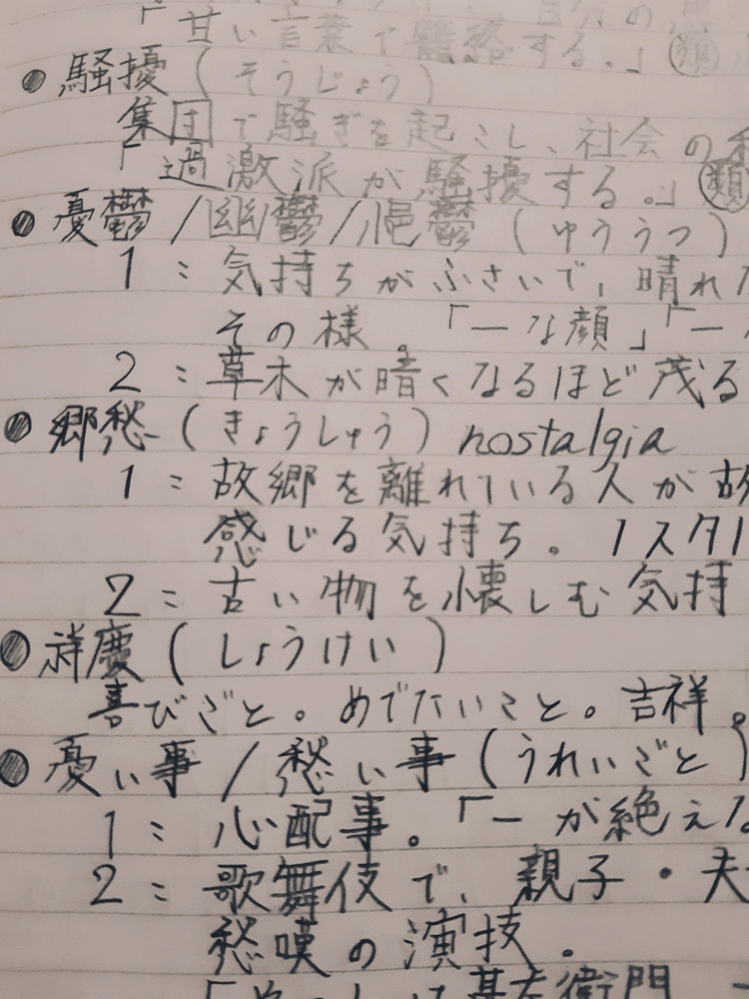 「甘い言葉で籠絡する。」類
●騒擾（そうじょう）
集団で騒ぎを起こし、社会の
「過激派が騒擾する。」類
●憂鬱/幽鬱/悒鬱（ゆううつ）
1：気持ちがふさいで、晴れ
その様。「―な顔」「―
2：草木が暗くなるほど茂る
●郷愁（きょうしゅう）nostalgia
1：故郷を離れている人が故
感じる気持ち。ノスタル
2：古い物を懐しむ気持
●祥慶（しょうけい）
喜びごと。めでたいこと。吉祥。
●憂い事/愁い事（うれいごと）
1：心配事。「―が絶えな
2：歌舞伎で、親子・夫
愁嘆の演技。